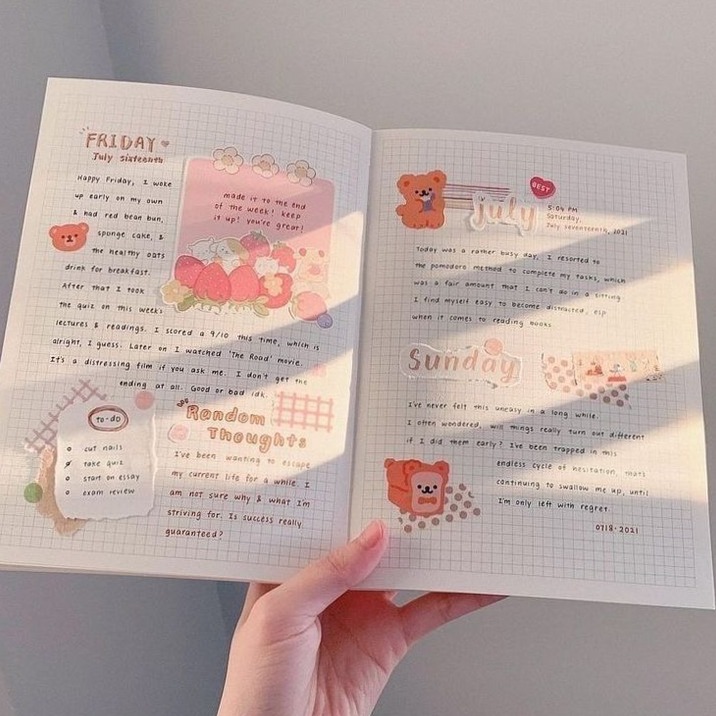 FRIDAY
July sixteenth
Happy Friday, I woke
up early on my own
& had red bean bun,
sponge cake, &
the healthy oats
drink for breakfast.
After that I took
the quiz on this week's
lectures & readings. I scored a 9/10 this time, which is
alright, I guess. Later on I watched 'The Road' movie.
It's a distressing film if you ask me. I don't get the
ending at all. Good or bad idk.
made it to the end
of the week! keep
it up! you're great!
to-do
cut nails
take quiz
start on essay
exam review
Random
Thoughts
I've been wanting to escape
my current life for a while. I
am not sure why & what I'm
striving for. Is success really
guaranteed?
BEST
July
5:04 PM
Saturday,
July seventeenth, 2021
Today was a rather busy day, I resorted to
the pomodoro method to complete my tasks, which
was a fair amount that I can't do in a sitting.
I find myself easy to become distracted, esp
when it comes to reading books
Sunday
I've never felt this uneasy in a long while.
I often wondered, will things really turn out different
if I did them early? I've been trapped in this
endless cycle of hesitation, that's
continuing to swallow me up, until
I'm only left with regret.
0718·2021